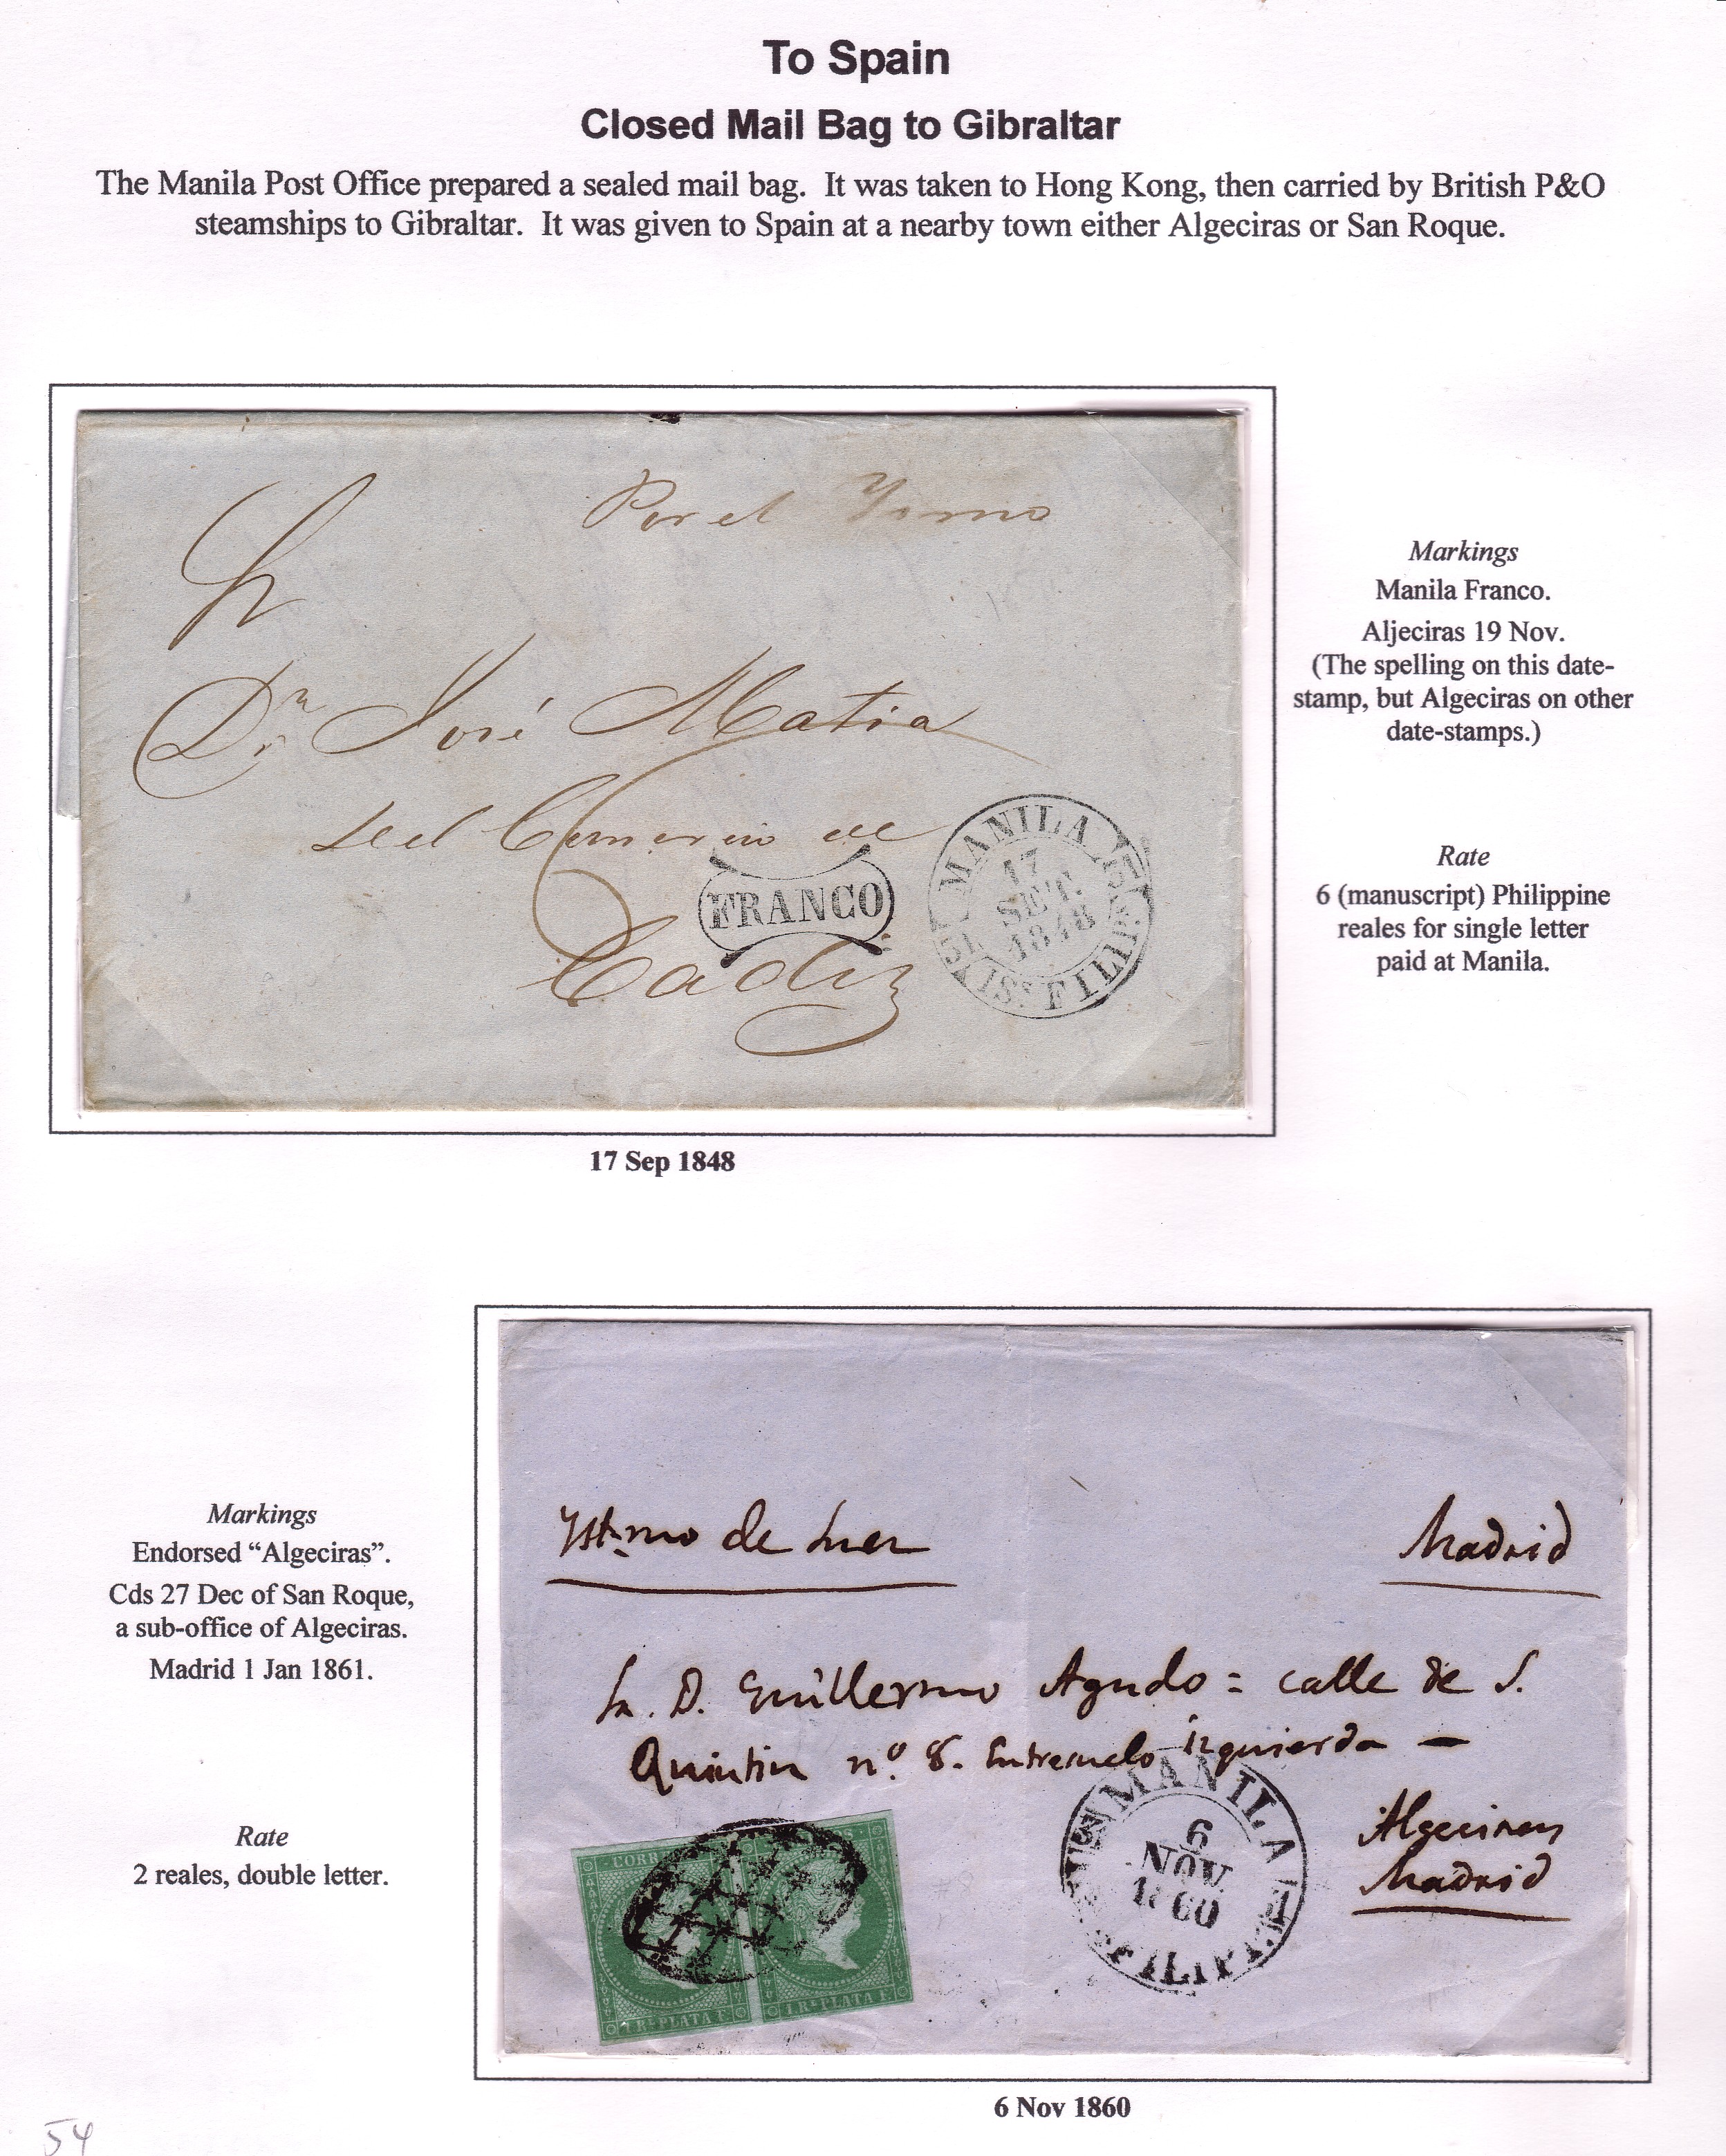 To Spain
Closed Mail Bag to Gibraltar
The Manila Post Office prepared a sealed mail bag. It was taken to Hong Kong, then carried by British P&O
steamships to Gibraltar. It was given to Spain at a nearby town either Algeciras or San Roque.
Por el Ysmo
Sr
Dn José Matia
del Comercio de
Cadiz
FRANCO
MANILA
17
SET.
1848
YSLAS FILIPS
Markings
Manila Franco.
Aljeciras 19 Nov.
(The spelling on this date-
stamp, but Algeciras on other
date-stamps.)
Rate
6 (manuscript) Philippine
reales for single letter
paid at Manila.
17 Sep 1848
Markings
Endorsed “Algeciras”.
Cds 27 Dec of San Roque,
a sub-office of Algeciras.
Madrid 1 Jan 1861.
Rate
2 reales, double letter.
Ystmo de Suez
Madrid
Sr. D. Guillermo Agudo = calle de S.
Quintin nº 8. Entresuelo izquierda —
Algeciras
Madrid
MANILA
6
NOV
1860
CORR
1 Rl PLATA F
1 Rl PLATA F
6 Nov 1860
54